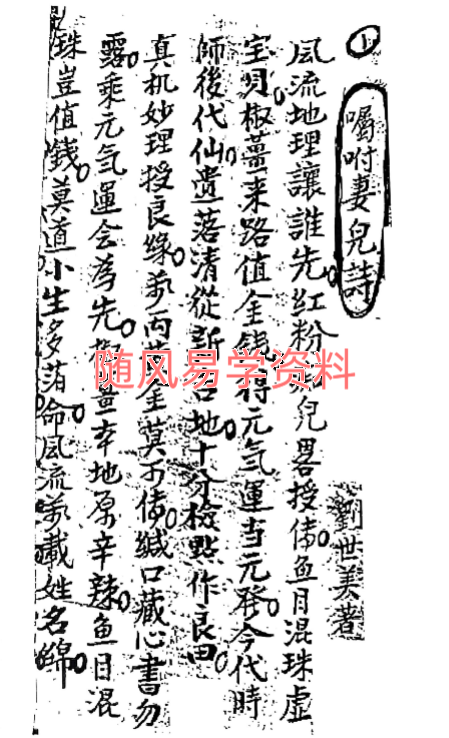 1
囑咐妻兒詩
劉世美著
風流地理讓誰先。紅粉兒畧授传。鱼目混珠虛
宝。贝椒薑来路值金銭。得元气運当元發。今代時
師後代仙。遗落清從新地。十分檢點作良田。
真机妙理授良緣。萬両黄金莫可传。緘口藏心書勿
露。乘元气運会為先。椒薑本地原辛辣。鱼目混
珠豈值錢。莫道小生多落命。風流萬載姓名錦。
随风易学资料